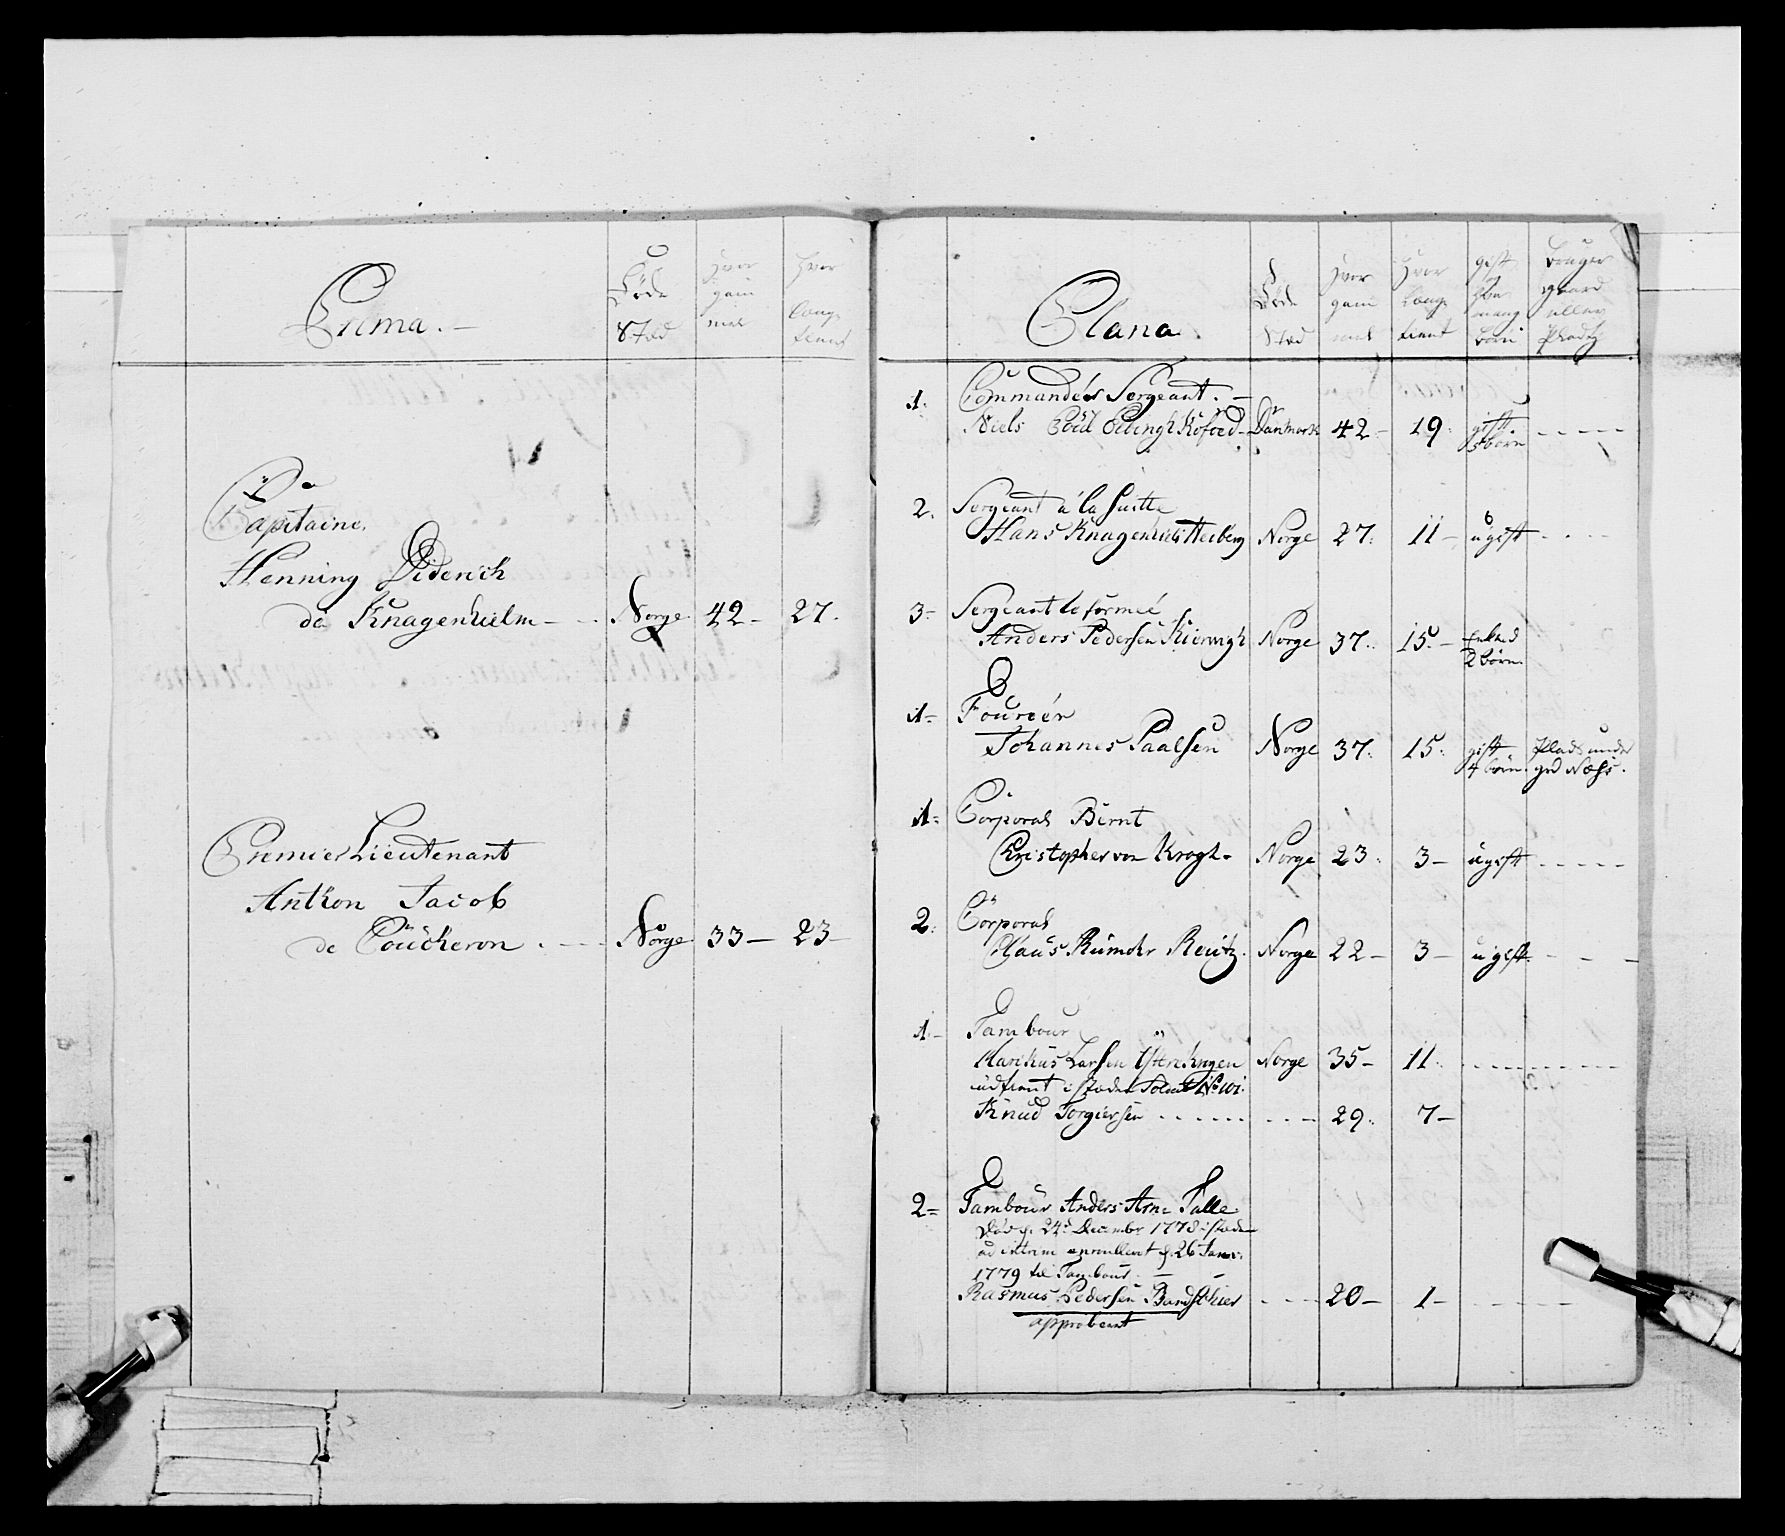 Prima. —
Føde Stæd
Hvor gammel
Hvor længe tient
Capitaine
Henning Diderich
de Knagenhielm — Norge 42 — 27.
Premier Lieutenant
Anthon Jacob
de Coucheron . — Norge 33 — 23 —
Plana.
Føde Stæd
Hvor gammel
Hvor længe tient
gift og hvor mang børn
bruger gaard eller Pladtz
1. Commandér Sergeant. —
Niels Poul Kofoed — Danmark 42 — 19. gift. 3 børn - - - -
2. Sergeant á la Suitte
Hans Knagenhielm Heiberg Norge 27. 11 — ugift - - - -
3 - Sergeant reformeé
Anders Pedersen Norge 37. 15. — Enked 2 børn.
1 - Foureér
Johannes Paalsen Norge 37. 15. gift 4 børn. Plads under grd Næss.
1 - Corporal Bernt
Christopher von Krogh. Norge 23. 3 — ugift - - - -
2. Corporal
Claus Rumohr Reutz. Norge 22 — 3 — ugift. - - -
1. - Tambour
Marcus Larsen Norge 35 — 11. - - - -
udtient i stæden Soldat No 101.
Knud Torgiersen - - - - - - - 29. 7 —
2 = Tambour Anders Arn: Falle
Død d. 24d December 1778 i stæden
ad interim enroullerit d. 26 Janv:
1779 til Tambour. —
Rasmus Pedersen - - - 20 — 1 — - - - -
approberit